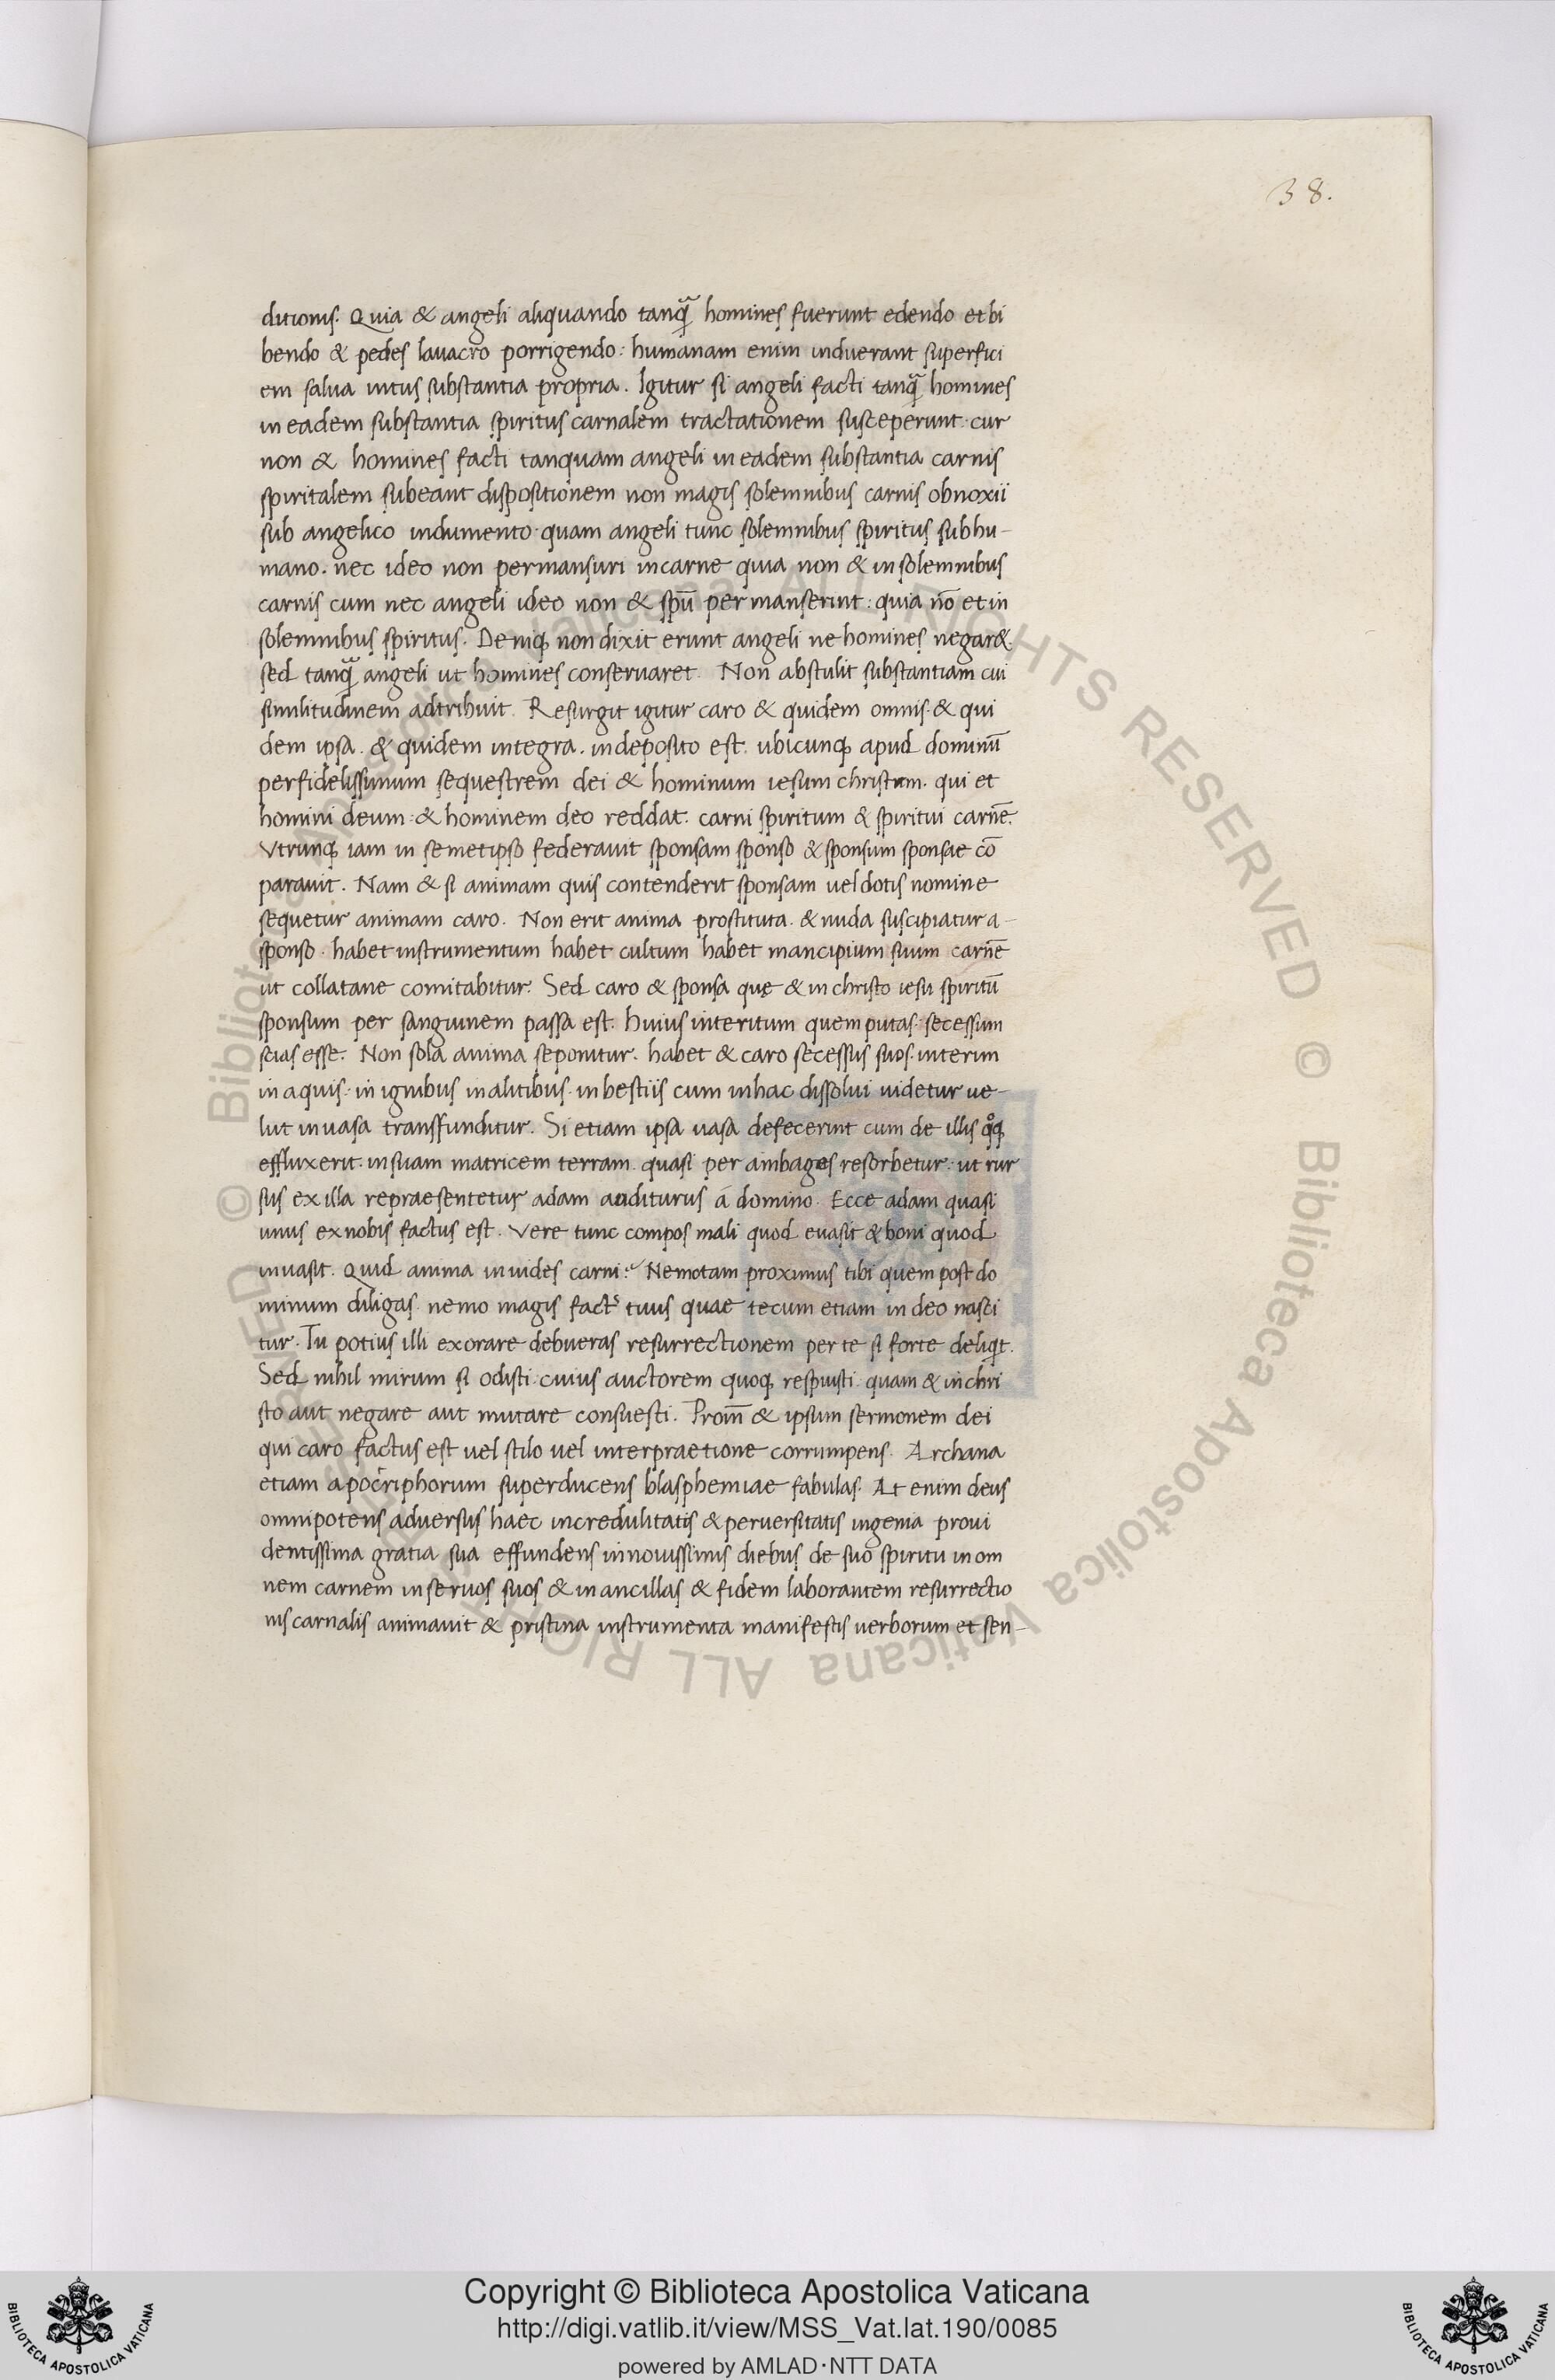 38.
ditionis. Quia & angeli aliquando tanqͣ homines fuerunt edendo et bi
bendo & pedes lauacro porrigendo: humanam enim induerant superfici
em salua intus substantia propria. Igitur si angeli facti tanqͣ homines
in eadem substantia spiritus carnalem tractationem susceperunt: cur
non & homines facti tanquam angeli in eadem substantia carnis
spiritalem subeant dispositionem non magis solemnibus carnis obnoxii
sub angelico indumento· quam angeli tunc solemnibus spiritus sub hu-
mano. nec ideo non permansuri in carne quia non & in solemnibus
carnis cum nec angeli ideo non & spū permanserint: quia nō et in
solemnibus spiritus. Deniqꝫ non dixit erunt angeli ne homines negar&.
sed tanqͣ angeli ut homines conseruaret. Non abstulit substantiam cui
similitudinem adtribuit. Resurgit igitur caro & quidem omnis· & qui
dem ipsa. & quidem integra. in deposito est. ubicunqꝫ apud dominū
per fidelissimum sequestrem dei & hominum iesum christum. qui et
homini deum: & hominem deo reddat. carni spiritum & spiritui carnē.
Vtrunqꝫ iam in semetipso federauit sponsam sponso & sponsum sponsae cō
parauit. Nam & si animam quis contenderit sponsam uel dotis nomine
sequetur animam caro. Non erit anima prostituta. & nuda suscipiatur a-
sponso· habet instrumentum habet cultum habet mancipium suum carnē
ut collatane comitabitur. Sed caro & sponsa quę & in christo iesu spiritū
sponsum per sanguinem passa est. Huius interitum quem putas: secessum
scias esse. Non sola anima seponitur. habet & caro secessus suos· interim
in aquis· in ignibus in alitibus· in bestiis cum in hac dissolui uidetur ue-
lut in uasa transfunditur. Si etiam ipsa uasa defecerint cum de illis qͦqꝫ
effluxerit· in suam matricem terram. quasi per ambages resorbetur: ut rur
sus ex illa repraesentetur adam auditurus á domino. Ecce adam quasi
unus ex nobis factus est. Vere tunc compos mali quod euasit & boni quod
inuasit. Quid anima inuides carni? Nemo tam proximus tibi quem post do
minum diligas. nemo magis fact' tuus quae tecum etiam in deo nasci
tur. Tu potius illi exorare debueras resurrectionem per te si forte deliqit.
Sed nihil mirum si odisti· cuius auctorem quoqꝫ respuisti· quam & in chri
sto aut negare aut mutare consuesti. Proīn & ipsum sermonem dei
qui caro factus est uel stilo uel interpraetione corrumpens. Archana
etiam apocriphorum superducens blasphemiae fabulas. At enim deus
omnipotens aduersus haec incredulitatis & peruersitatis ingenia proui
dentissima gratia sua effundens in nouissimis diebus de suo spiritu in om
nem carnem in seruos suos & in ancillas & fidem laborantem resurrectio
nis carnalis animauit & pristina instrumenta manifestis uerborum et sen-
© Biblioteca Apostolica Vaticana ALL RIGHTS RESERVED © Biblioteca Apostolica Vaticana ALL RIGHTS RESERVED
Copyright © Biblioteca Apostolica Vaticana
http://digi.vatlib.it/view/MSS_Vat.lat.190/0085
powered by AMLAD·NTT DATA
BIBLIOTECA APOSTOLICA VATICANA
BIBLIOTECA APOSTOLICA VATICANA